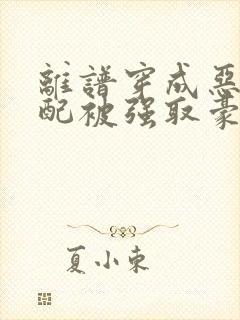 離譜穿成惡
配被强取豪
夏小東